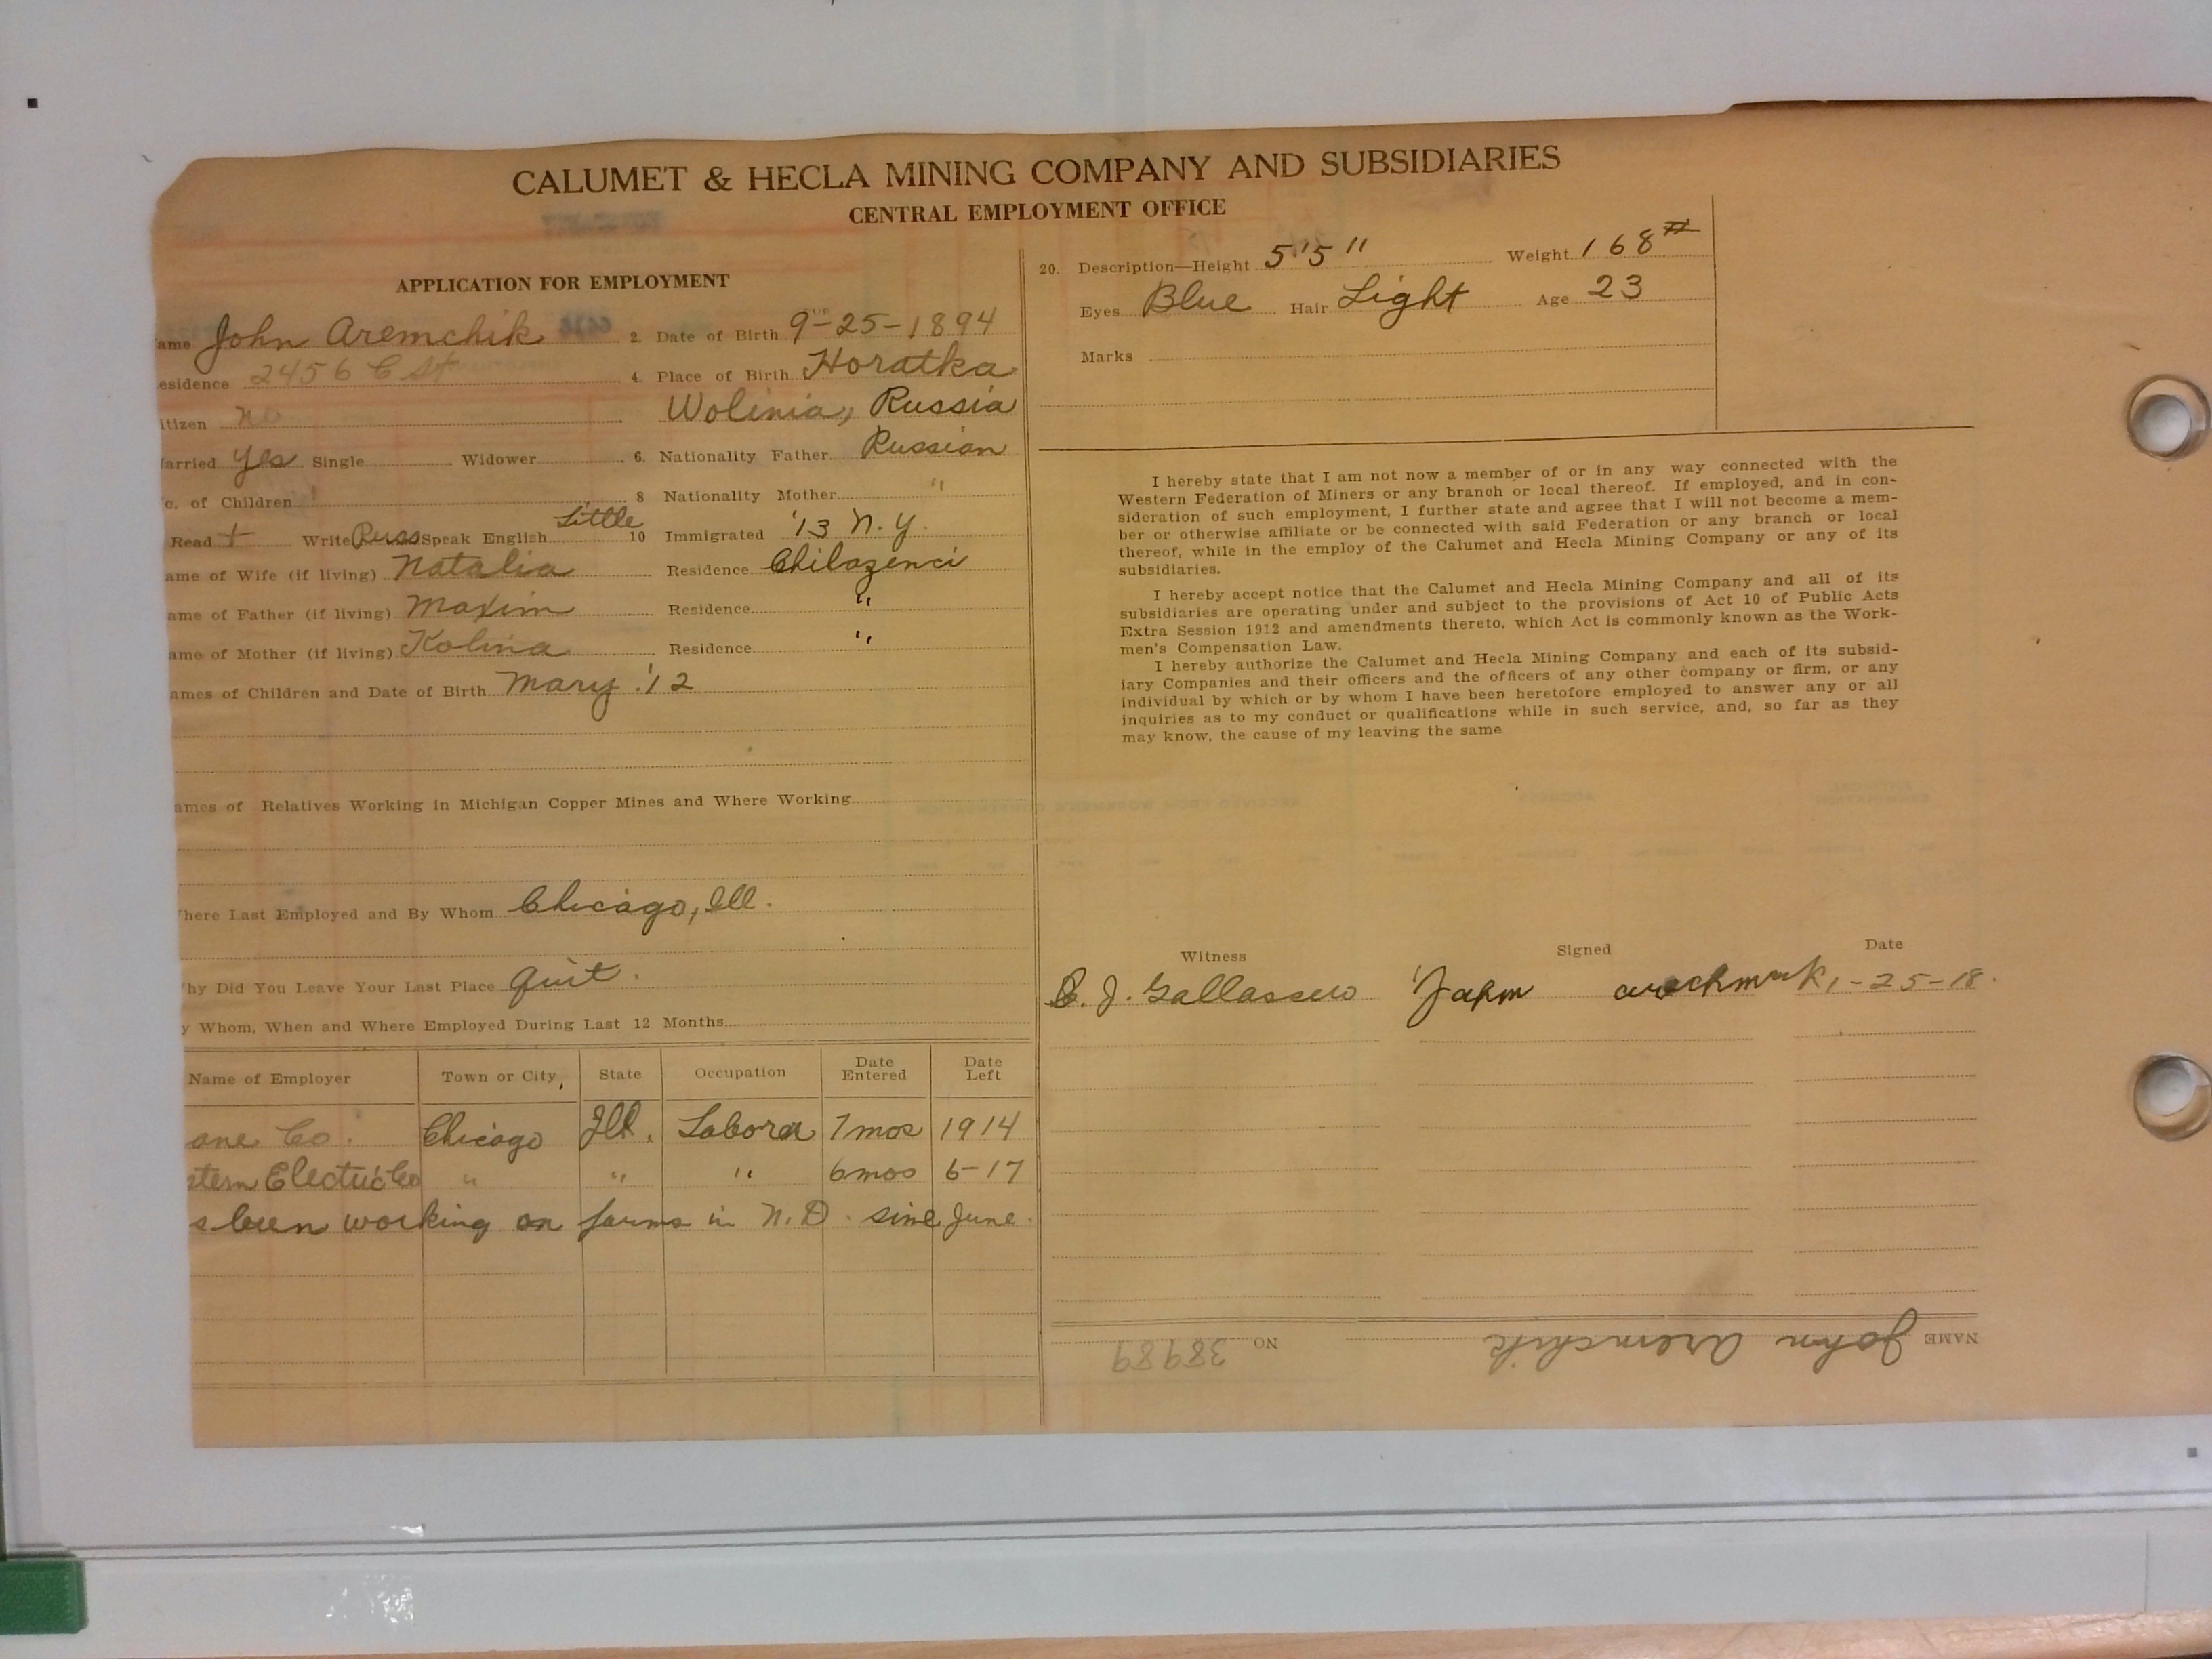 CALUMET & HECLA MINING COMPANY AND SUBSIDIARIES
CENTRAL EMPLOYMENT OFFICE
APPLICATION FOR EMPLOYMENT
ame John Aremchik 2. Date of Birth 9-25-1894
esidence 2456 C St 4. Place of Birth Horatka
itizen no Wolinia, Russia
arried yes Single Widower 6. Nationality Father Russian
o. of Children 1 8 Nationality Mother "
Read + Write Russ Speak English Little 10 Immigrated '13 N.Y.
ame of Wife (if living) Natalia Residence Chilozenci
ame of Father (if living) Maxim Residence "
ame of Mother (if living) Kolina Residence "
ames of Children and Date of Birth Mary '12
ames of Relatives Working in Michigan Copper Mines and Where Working
here Last Employed and By Whom Chicago, Ill.
hy Did You Leave Your Last Place quit.
y Whom, When and Where Employed During Last 12 Months
Name of Employer Town or City, State Occupation Date Entered Date Left
ane Co. Chicago Ill. Labora 7 mos 1914
stern Electric Co " " " 6 mos 6-17
s been working on farms in N.D. since June.
20. Description—Height 5'5" Weight 168#
Eyes Blue Hair Light Age 23
Marks
I hereby state that I am not now a member of or in any way connected with the
Western Federation of Miners or any branch or local thereof. If employed, and in con-
sideration of such employment, I further state and agree that I will not become a mem-
ber or otherwise affiliate or be connected with said Federation or any branch or local
thereof, while in the employ of the Calumet and Hecla Mining Company or any of its
subsidiaries.
I hereby accept notice that the Calumet and Hecla Mining Company and all of its
subsidiaries are operating under and subject to the provisions of Act 10 of Public Acts
Extra Session 1912 and amendments thereto, which Act is commonly known as the Work-
men's Compensation Law.
I hereby authorize the Calumet and Hecla Mining Company and each of its subsid-
iary Companies and their officers and the officers of any other company or firm, or any
individual by which or by whom I have been heretofore employed to answer any or all
inquiries as to my conduct or qualifications while in such service, and, so far as they
may know, the cause of my leaving the same
Witness Signed Date
J. Gallassero 1-25-18.
NAME John Aremchik NO 38989